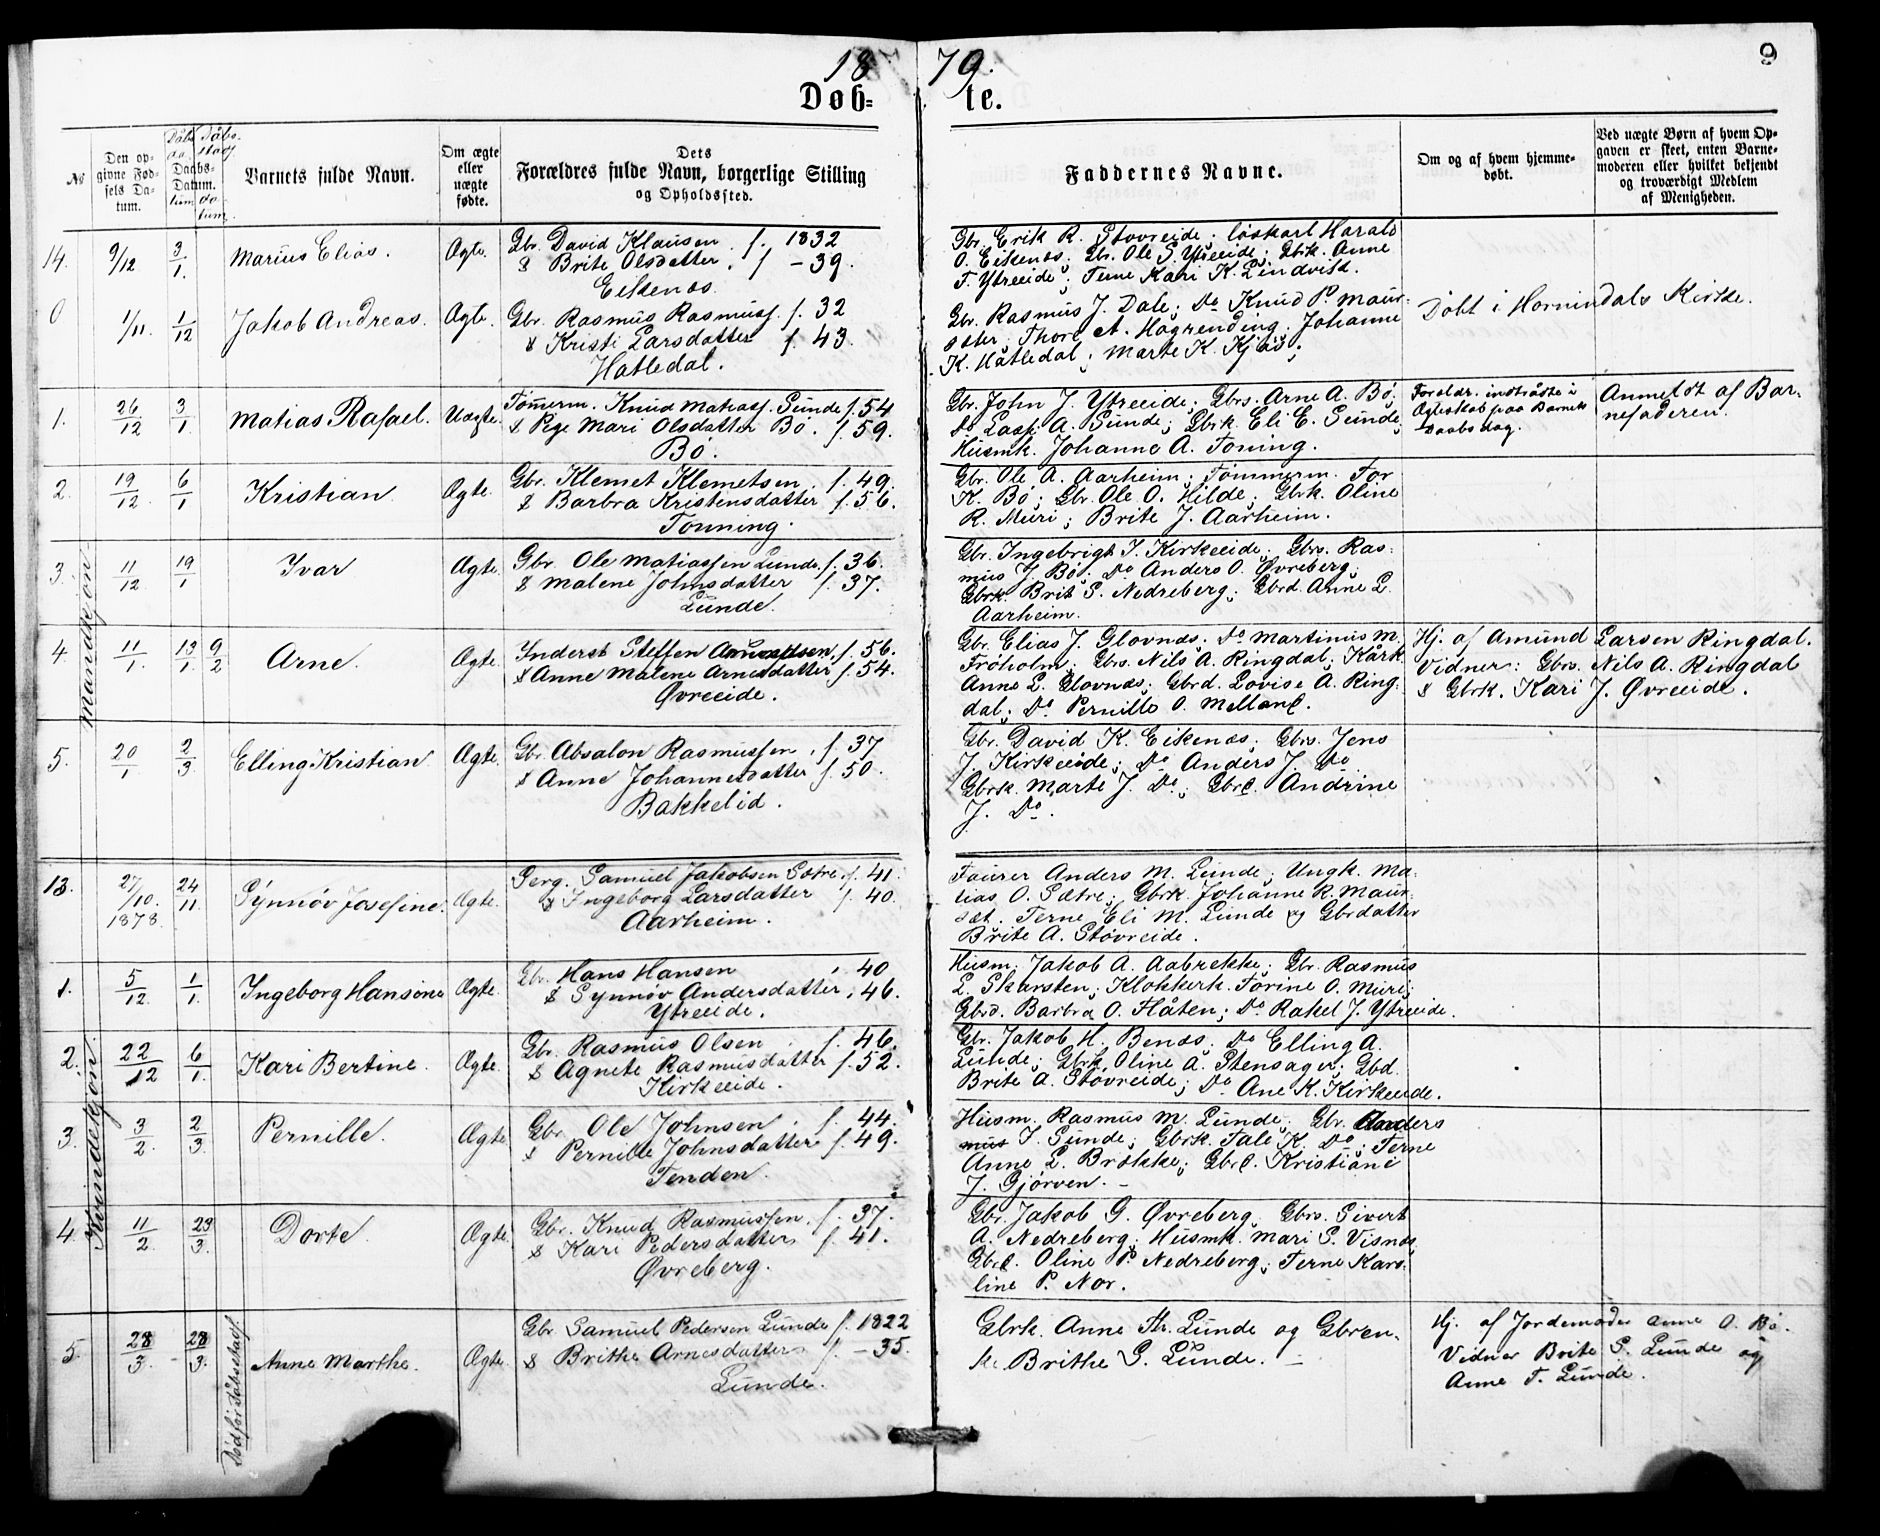 18 79.
9
Døb- te.
No
Den opgivne Fødsels Datum.
Dåbs Daabs-Datum.
Dåbsstadf. datum.
Barnets fulde Navn.
Om ægte eller uægte fødte.
Dets Forældres fulde Navn, borgerlige Stilling og Opholdssted.
Faddernes Navne.
Om og af hvem hjemmedøbt.
Ved uægte Børn af hvem Opgaven er skeet, enten Barnemoderen eller hvilket bekjendt og troværdigt Medlem af Menigheden.
Mandkjøn
14. 9/12 3/1. Marius Elias. Ægte.
Gbr. David Klausen f. 1832
& Brite Olsdatter f. - 39.
Eikenæs.
Gbr. Erik R. Stovreide. løskarl Harald
O. Eikenæs; Gbr. Ole S. Ytreeide; Gbrk. Anne
T. Ytreeide; Terne Kari K. Lindvik.
0 1/11. 1/12 Jakob Andreas. Ægte.
Gbr. Rasmus Rasmuss. f. 32
& Kristi Larsdatter f. 43.
Hatledal.
Gbr. Rasmus J. Dale; Do Knud P. Maur-
sæter; Thore A. Hogrending. Johanne
K. Hatledal; Marte K. Kjøs.
Døbt i Hornindals Kirke.
1. 26/12 3/1. Matias Rafael. Uægte.
Tømerm. Knud Matiass. Sunde f. 54
& Pege Mari Olsdatter Bø. f. 59.
Bø.
Gbr. John J. Ytreeide; Gbrs. Arne A. Bø;
Do Lasse A. Sunde; Gbrk Eli E. Sunde;
Husmk. Johanne A. Toning.
Foreldr. indtrådte i
Ægteskab paa Barnets
Daabsdag.
Anmeldt af Bar-
nefaderen.
2. 19/12 6/1 Kristian. Ægte.
Gbr. Klemet Klemetsen. f. 49.
& Barbra Kristensdatter f. 56.
Tonning.
Gbr. Ole A. Aarheim; Tømmerm. Tor
K. Bø; Gbr. Ole O. Hilde; Gbrk. Oline
R. Muri; Brite J. Aarheim.
3. 11/12 19/1 Ivar Ægte.
Gbr. Ole Matiassen Lunde. f. 36.
& Malene Johnsdatter f. 37.
Lunde.
Gbr. Ingebrigt J. Kirkeeide; Gbrs. Ras-
mus J. Bø; Do Anders O. Øvreberg;
Gbrk. Brit S. Nedreberg; Gbrd. Anne L.
Aarheim.
4. 11/1. 13/1. 9/2 Arne. Ægte.
Inderst Steffen f. 56.
& Anne Malene Arnesdatter f. 54.
Øvreeide.
Gbr. Elias J. Glovnæs; Do Martinus M.
Froholm; Gbrs. Nils A. Ringdal; Kårk.
Anne L. Glovnæs; Gbrd. Lovise A. Ring-
dal; Do Pernille O. Melland.
Hj. af Amund Larsen Ringdal.
Vidner: Gbrs. Nils A. Ringdal
& Gbrk. Kari J. Øvreeide.
5. 20/1 2/3 Elling Kristian Ægte.
Gbr. Absalon Rasmussen. f. 37
& Anne Johannesdatter f. 50.
Bakkelid.
Gbr. David K. Eikenæs; Gbrs. Jens
J. Kirkeeide; Do Anders J. Do
Gbrsk. Marte J. Do; Gbrd. Andrine
J. Do.
Kvindekjøn
13. 27/10. 1878. 24/11. Synnøv Josefine. Ægte.
Serg. Samuel Jakobsen Sætre. f. 41.
& Ingeborg Larsdatter f. 40.
Aarheim.
Faurer Anders M. Lunde; Ungk. Ma-
tias O. Sætre; Gbrk. Johanne R. Maur-
sæt. Terne Eli M. Lunde og Gbrdatter
Brite A. Støvreide.
1. 5/12. 1/1. Ingeborg Hansine Ægte.
Gbr. Hans Hansen 40
& Synnøv Andersdatter 46.
Ytreeide.
Husm. Jakob A. Aabrekke; Gbr. Rasmus
L. Skarsten; Klokkerk. Torine O. Muri;
Gbrd. Barbra O. Flåten; Do Rakel J. Ytreeide.
2. 22/12 6/1. Kari Bertine. Ægte.
Gbr. Rasmus Olsen f. 46.
& Agnete Rasmusdatter f. 52.
Kirkeeide.
Gbr. Jakob H. Benæs; Do Elling A.
Lunde; Gbrk. Oline A. Stensager; Gbd.
Brite A. Støvreide; Do Ane K. Kirkeeide.
3. 3/2. 2/3. Pernille. Ægte.
Gbr. Ole Johnsen. f. 44.
& Pernille Johnsdatter f. 49.
Tenden.
Husm. Rasmus M. Lunde; Gbr. Anders
mus J. Sunde; Gbrk. Tale K. Do; Terne
Anne L. Brække; Gbrd. Kristiane
J. Gjørven. -
4. 11/2. 23/3. Dorte. Ægte.
Gbr. Knud Rasmussen. f. 37.
& Kari Pedersdatter f. 41.
Øvreberg.
Gbr. Jakob G. Øvreberg. Gbrs. Sivert
A. Nedreberg; Husmk. Mari S. Visnæs;
Gbrd. Oline P. Nedreberg; Terne Karo-
line P. Nor.
5. 28/3. - 28/3. Død før Dåbsstadf. Anne Marthe. Ægte.
Gbr. Samuel Pedersen Lunde f. 1822
& Brithe Arnesdatter f. - 35.
Lunde.
Gbrk. Anne Th. Lunde og Gbren-
ke Brithe G. Lunde. -
Hj. af Jordemoder Anne O. Bø.
Vidner Brite S. Lunde og
Anne T. Lunde.